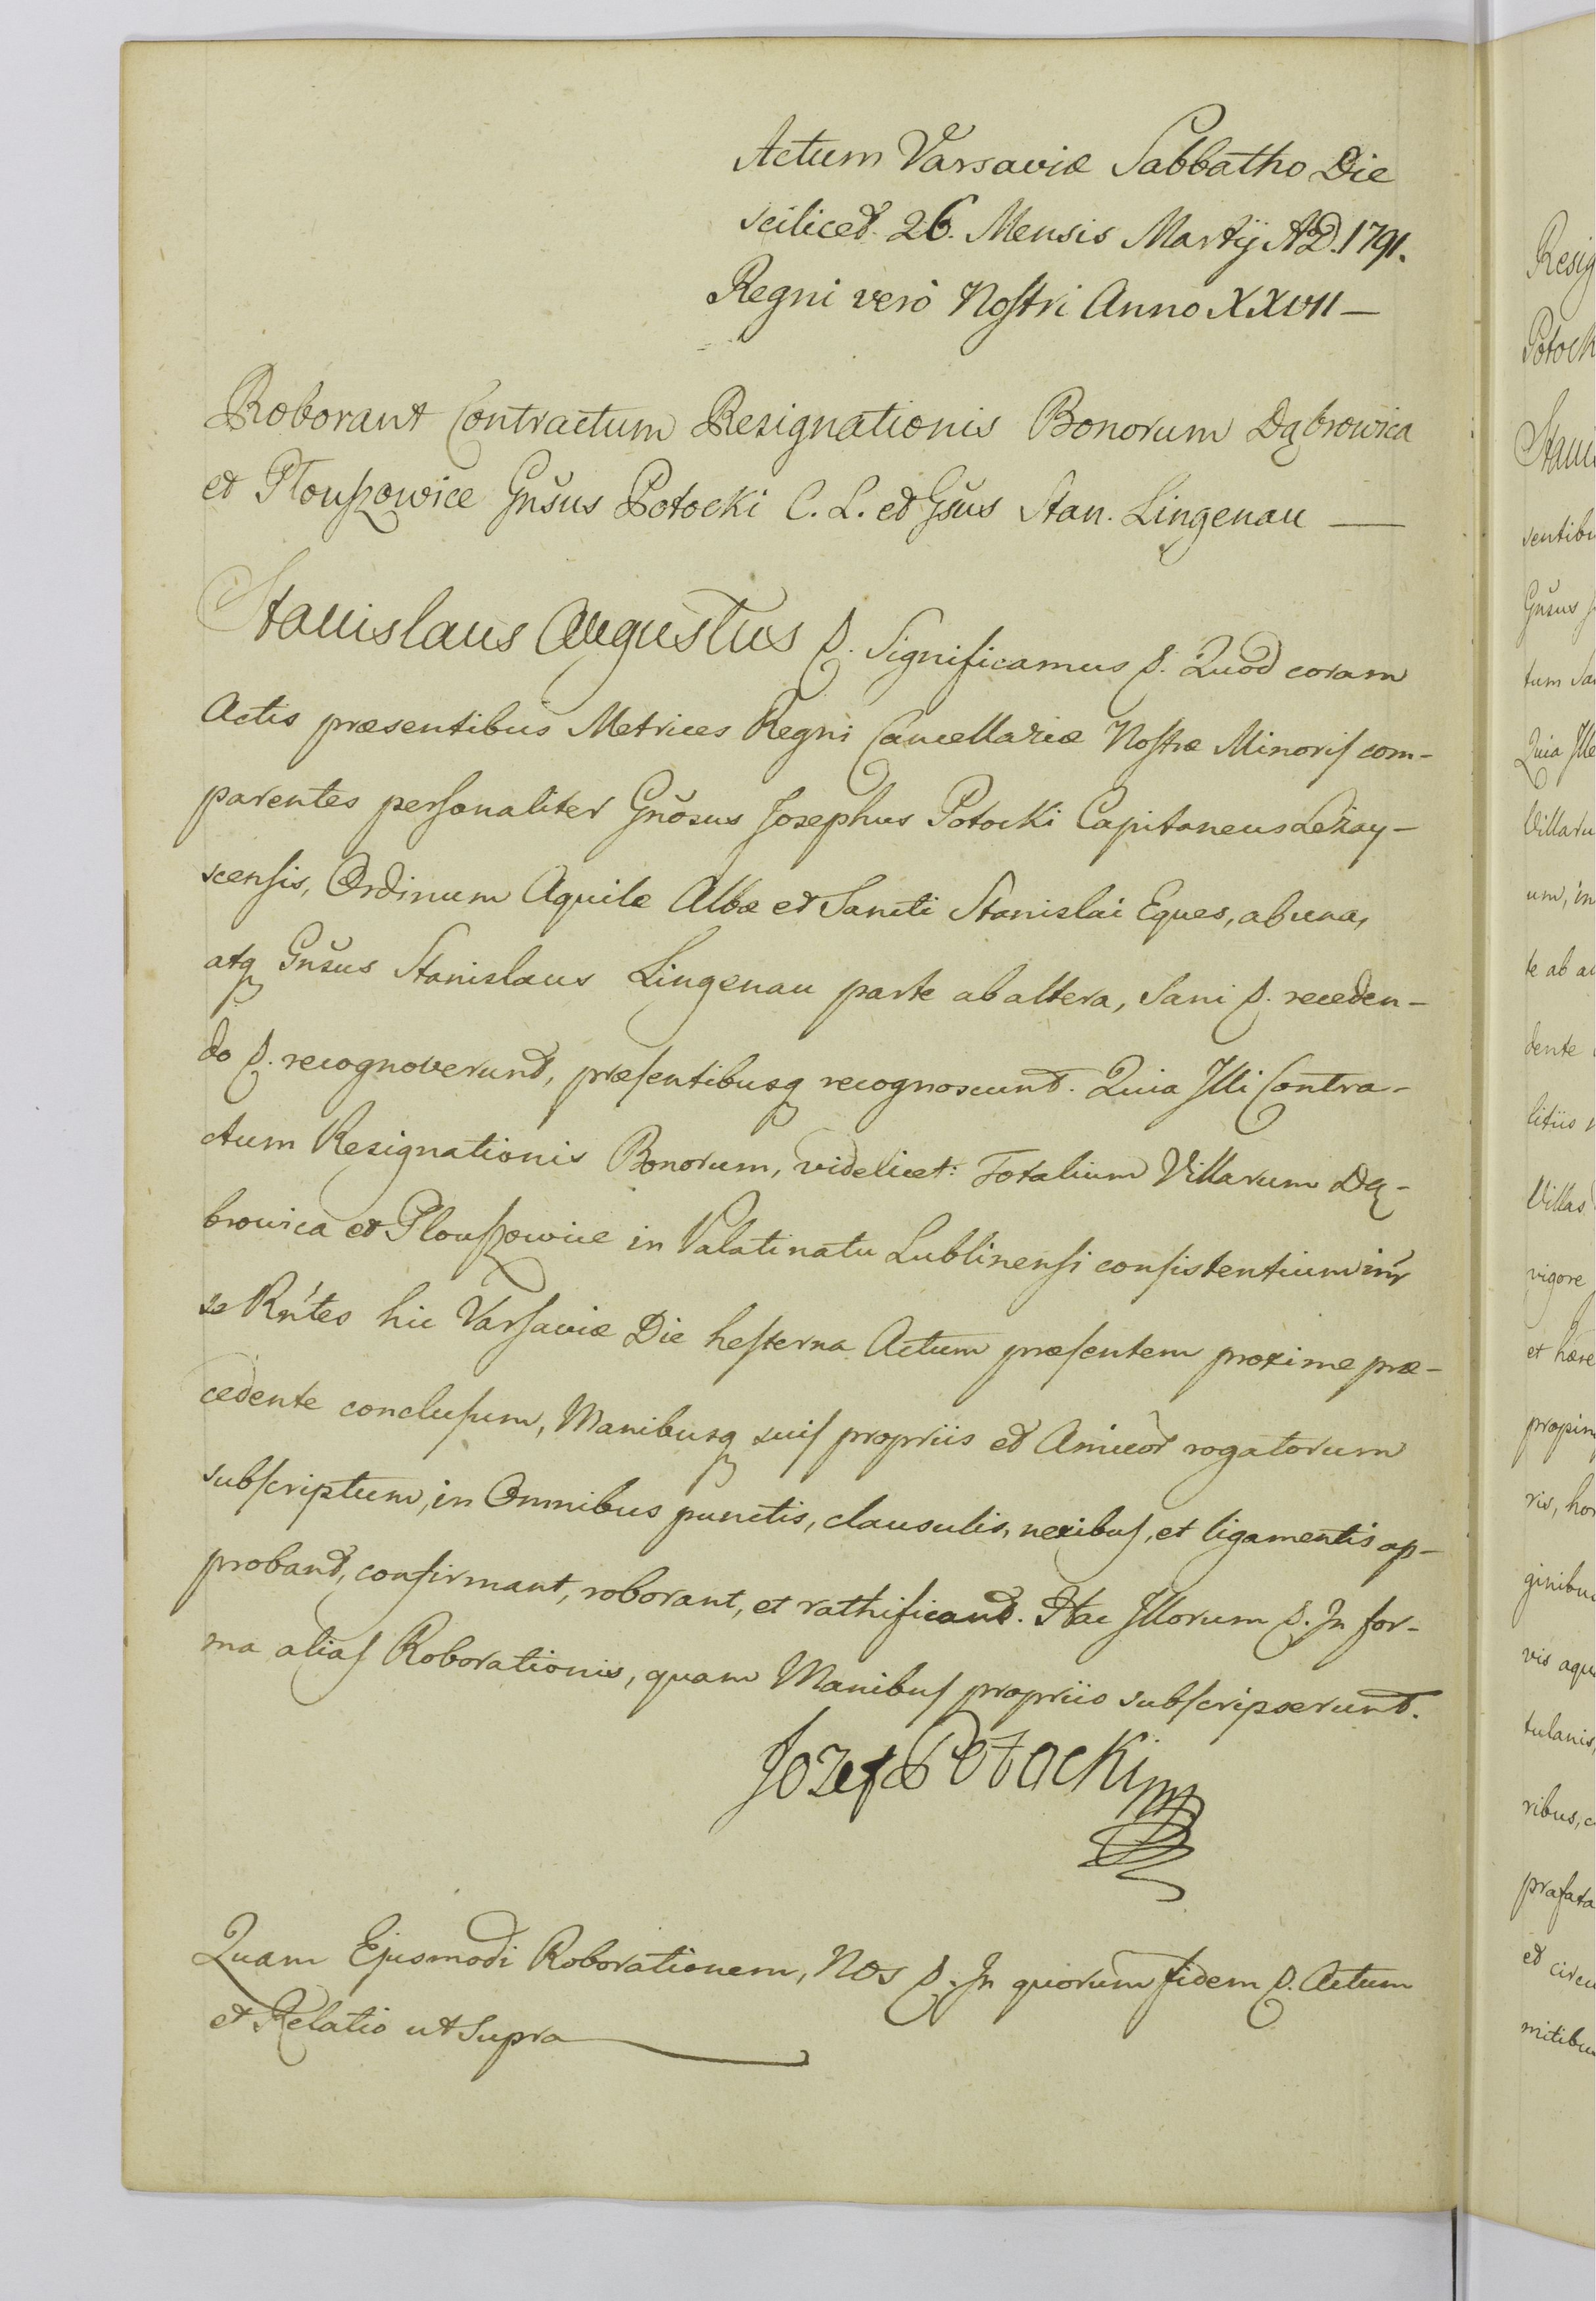 Actum Varsaviæ Sabbatho Die
scilicet 26. Mensis Martij AD. 1791.
Regni verò Nostri Anno XXVII —
Roborant Contractum Resignationis Bonorum Dąbrowica
et Płouszowice Gnsus Potocki C. L. et Gsus Stan. Lingenau —
Stanislaus Augustus &. Significamus &. Quod coram
Actis præsentibus Metrices Regni Cancellariæ Nostræ Minoris com-
parentes personaliter Gnosus Josephus Potocki Capitaneus Leżay-
scensis, Ordinum Aquilæ Albæ et Sancti Stanislai Eques, ab una,
atq Gnsus Stanislaus Lingenau parte ab altera, Sani &. receden-
do &. recognoverunt, præsentibusq recognoscunt. Quia Illi Contra-
ctum Resignationis Bonorum, videlicet: Totalium Villarum Dą-
browica et Plouszowice in Palatinatu Lublinensi consistentium intr
se Rntes hic Varsaviæ Die hesterna Actum præsentem proxime præ-
cedente conclusum, Manibusq suis propriis et Amicor rogatorum
subscriptum, in Omnibus punctis, clausulis, nexibus, et ligamentis ap-
probant, confirmant, roborant, et rathificant. Hac Illorum &. In for-
ma alias Roborationis, quam Manibus propriis subscripserunt.
Jozef Potocki mp
Quam Ejusmodi Roborationem, Nos &. In quorum fidem &. Actum
et Relatio ut Supra
Resig
Potock
Stanis
sentibu
Gnsus J
tum Sa
Quia Ille
Villaru
um, in
te ab a
dente
litiis
Villas
vigore
et hære
propin
ris, hor
ginibus
vis aqu
tulanis,
ribus, c
præfata
et circu
mitibu